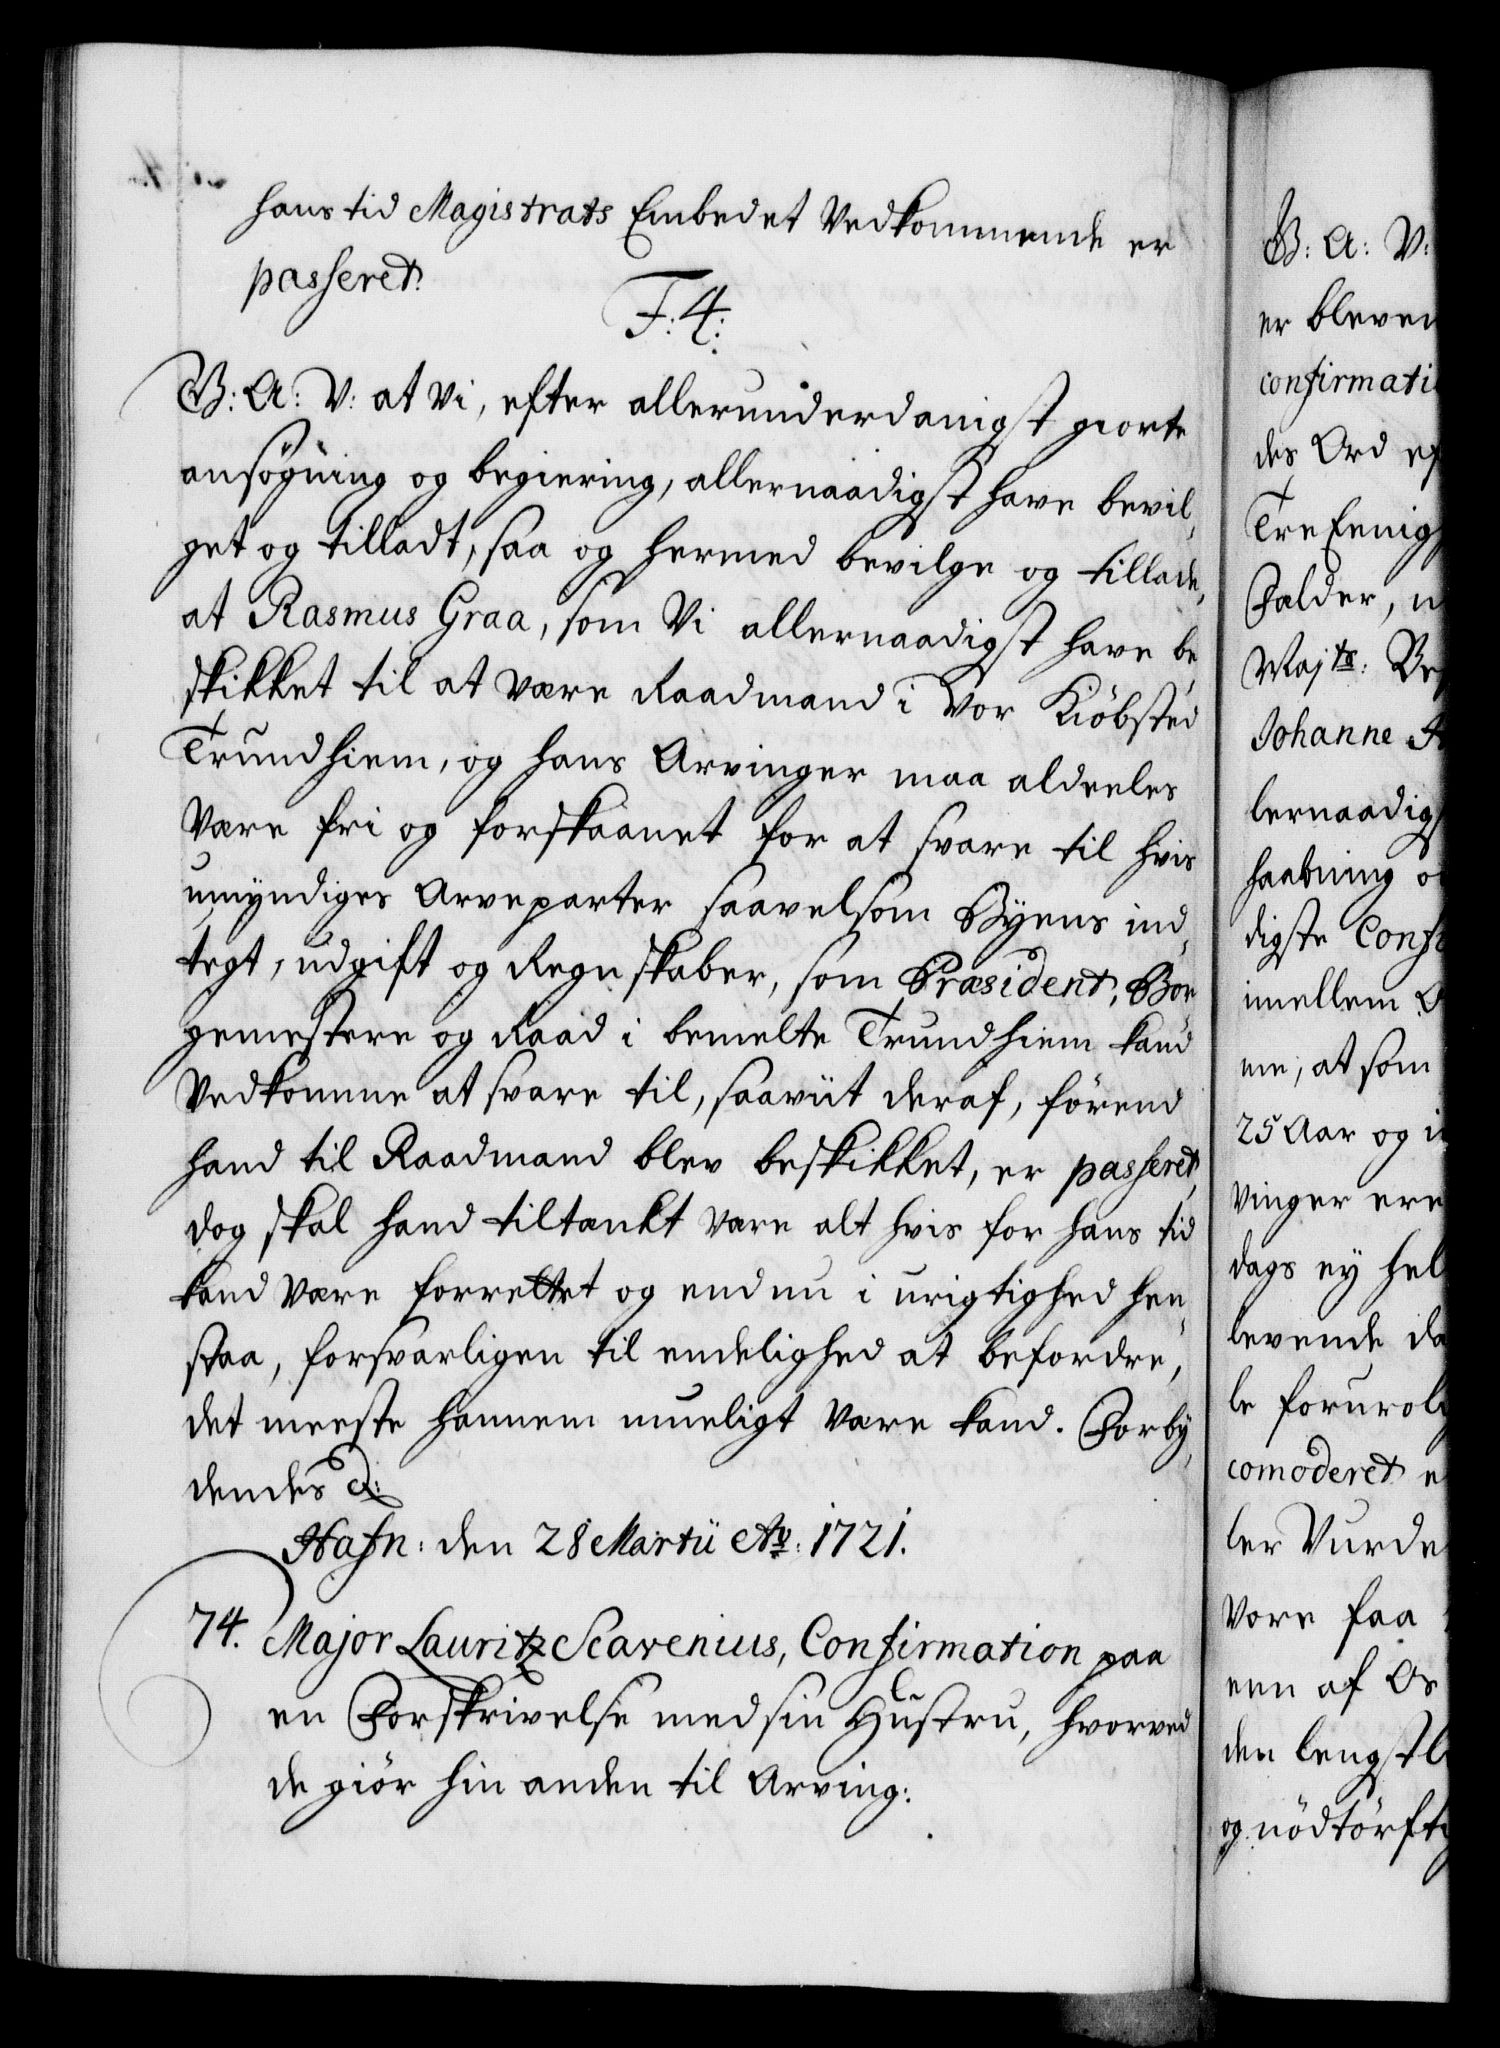 hans tid Magistrats Embedet Vedkommende er
passeret.
F: 4:
G: A: V: at Vi, efter allerunderdanigst giorte
ansøgning og begiering, allernaadigst have bevil-
get og tilladt, saa og hermed bevilge og tillade,
at Rasmus Graa, som Vi allernaadigst have be-
skikket til at være Raadmand i Vor Kiøbsted
Trundhiem, og hans Arvinger maa aldeeles
være fri og forskaanet for at svare til hvis
umyndiges Arveparter saavelsom Byens ind-
tegt, udgift og Regnskaber, som Præsident, Bor-
gemestere og Raad i bemelte Trundhiem kand
Vedkomme at svare til, saaviit deraf, førend
hand til Raadmand blev beskikket, er passeret,
dog skal hand tiltænkt være alt hvis for hans tid
kand være forrettet og endnu i urigtighed hen-
staa, forsvarligen til endelighed at befordre,
det meeste hannem mueligt være kand. Forby-
dendes &:
Hafn: den 28 Martii Ao: 1721.
74. Major Lauritz Scavenius, Confirmation paa
en Forskrivelse med sin Hustru, hvorved
de giør hin anden til Arving:
G: A: V:
er bleven
confirmati
des Ord ef
Tre Eenig
Falder, u
Majts:
Johanne
lernaadigs
haabning o
digste Conf
imellem
me, at som
25 Aar og i
vinger ere
dags ey hel
levende da
le foruroli
comoderet e
ler Vurde
vore faa
een af Os
den lengstl
og nødtørft